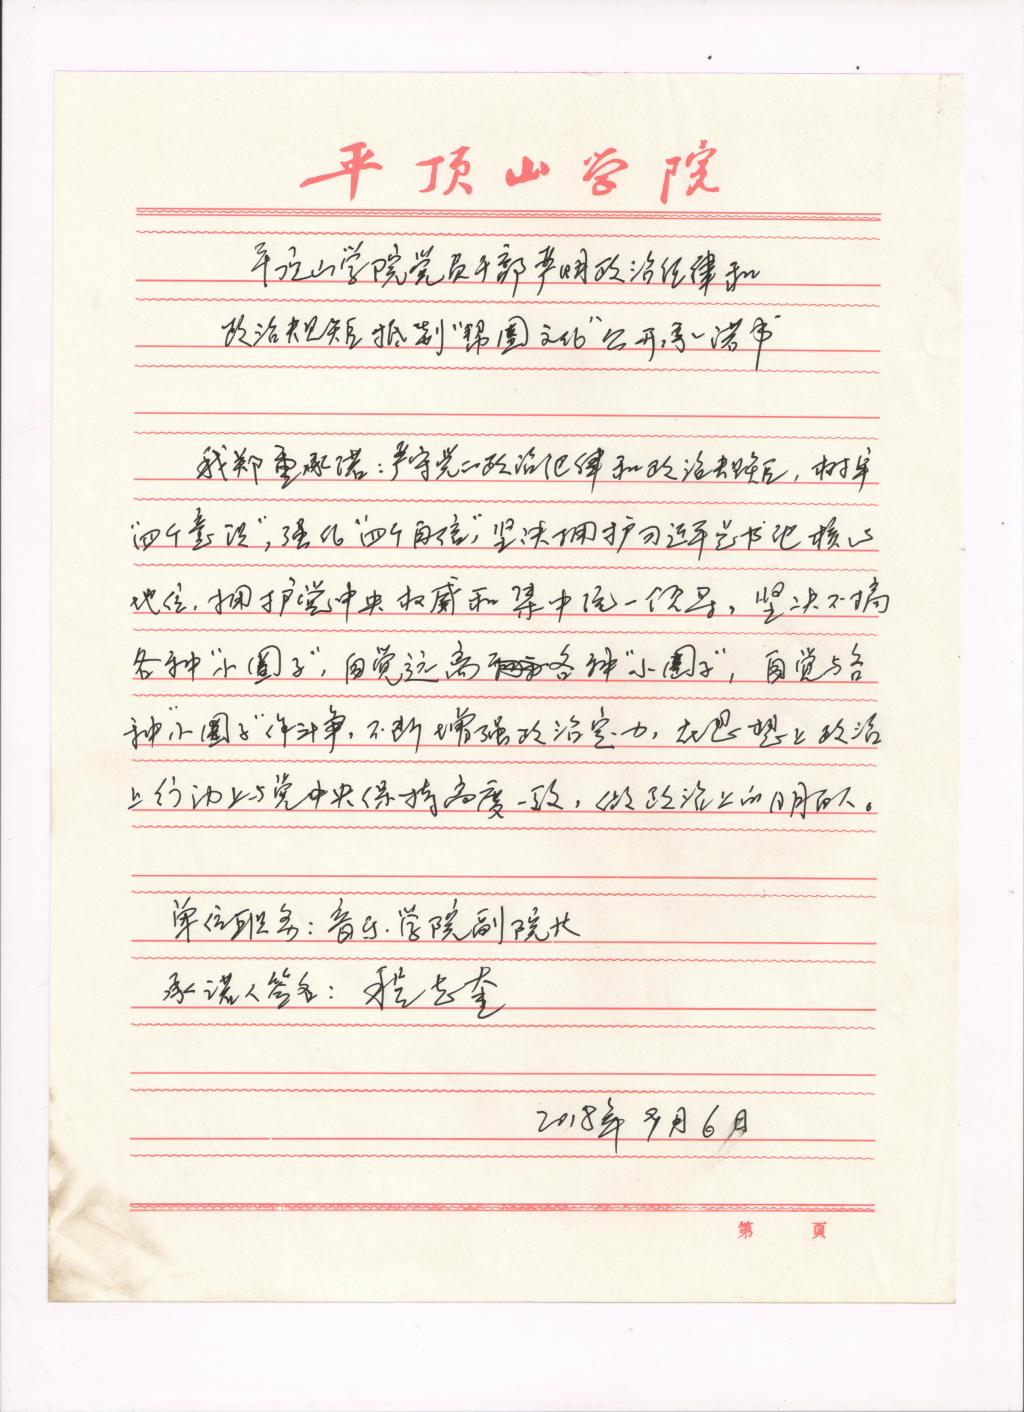 平顶山学院
平顶山学院党员干部严明政治纪律和
政治规矩抵制“帮圈文化”公开承诺书
我郑重承诺：严守党的政治纪律和政治规矩，树牢
“四个意识”，强化“四个自信”，坚决拥护习近平总书记核心
地位，拥护党中央权威和集中统一领导，坚决不搞
各种“小圈子”，自觉远离各种“小圈子”，自觉与各
种“小圈子”作斗争，不断增强政治定力，在思想上政治
上行动上与党中央保持高度一致，做政治上的明白人。
单位职务：音乐学院副院长
承诺人签名：程志奎
2018年9月6日
第 页